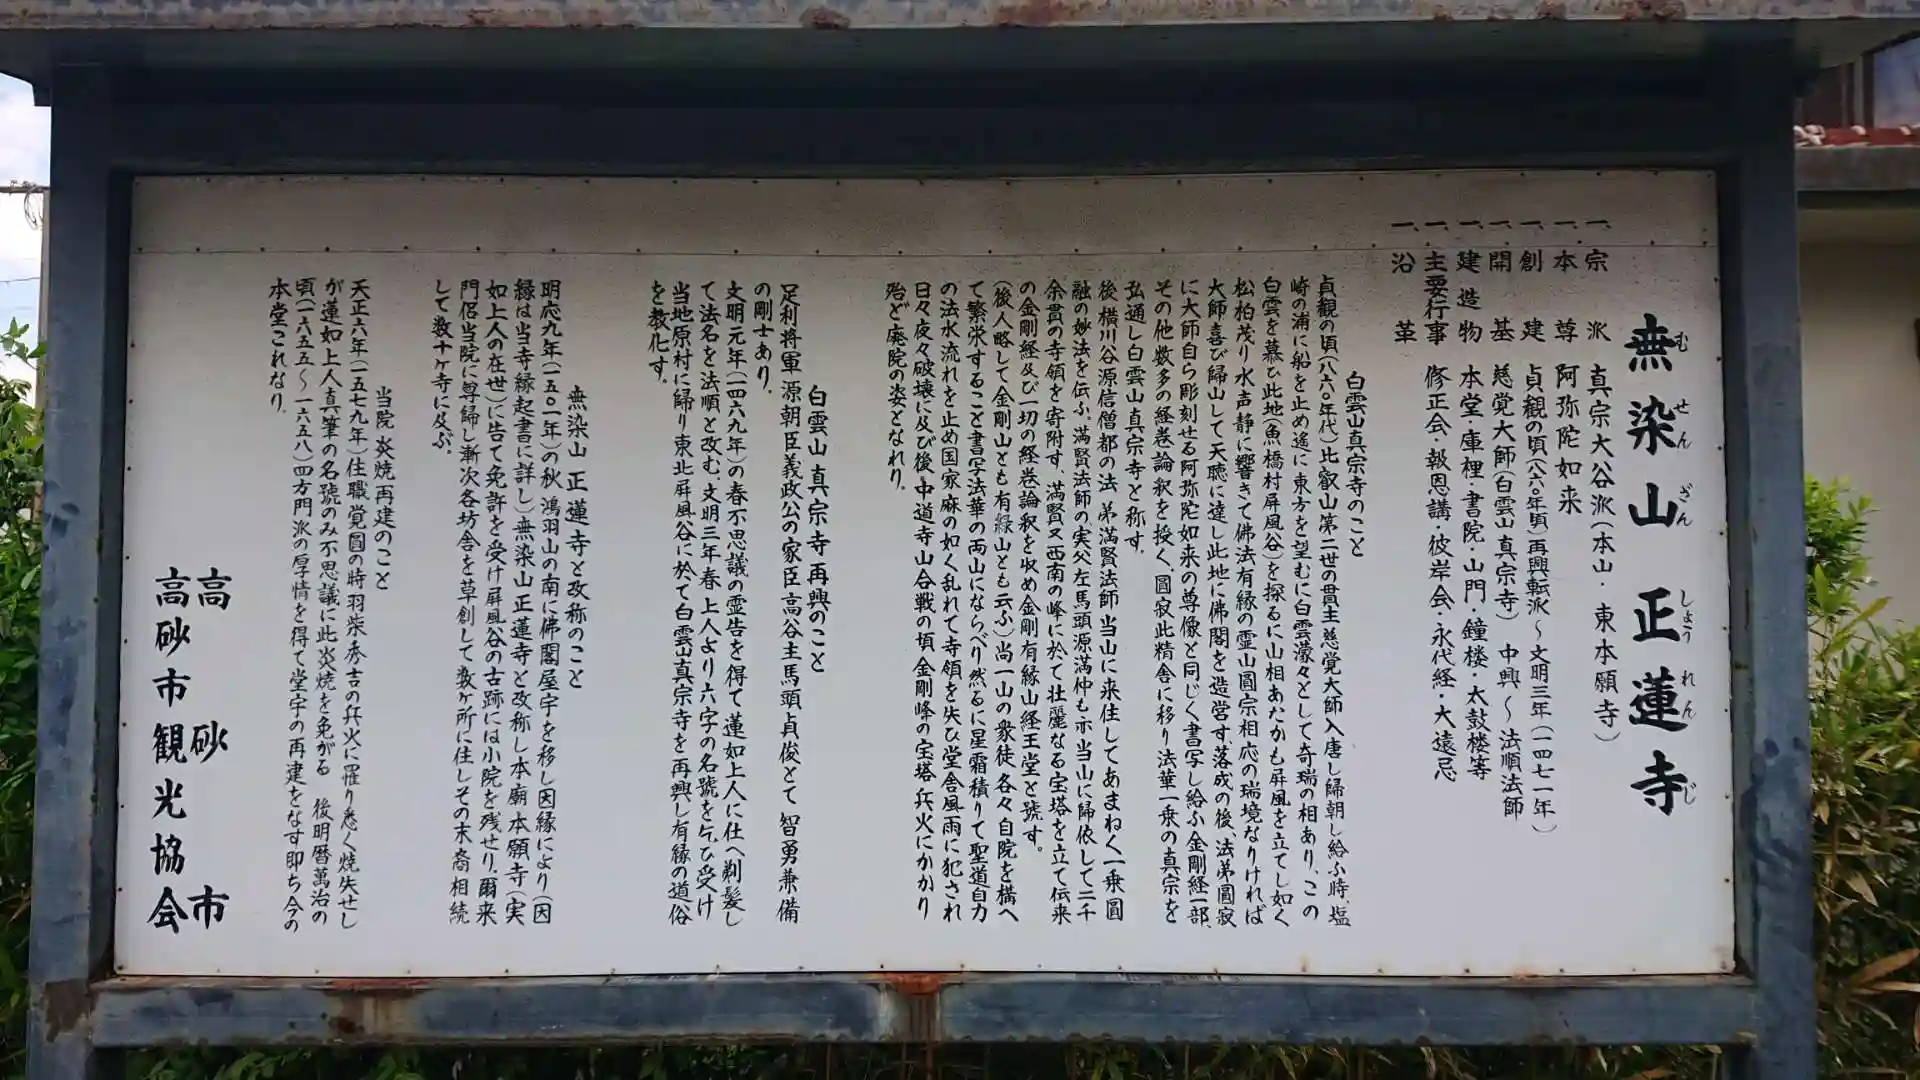 無染山 正蓮寺
むせんざん しょうれんじ
一、宗派 真宗大谷派(本山・東本願寺)
一、本尊 阿弥陀如来
一、創建 貞観の頃(八六〇年頃)再興転派～文明三年(一四七一年)
一、開基 慈覚大師(白雲山真宗寺) 中興～法順法師
一、建造物 本堂・庫裡・書院・山門・鐘楼・太鼓楼等
一、主要行事 修正会・報恩講・彼岸会・永代経・大遠忌
一、沿革
白雲山真宗寺のこと
貞観の頃(八六〇年代)比叡山第二世の貫主慈覚大師入唐し帰朝し給ふ時、塩
崎の浦に船を止め遙に東方を望むに白雲濛々として奇瑞の相あり、この
白雲を慕ひ此地(魚橋村屏風谷)を探るに山相あたかも屏風を立てし如く
松柏茂り水声静に響きて佛法有縁の霊山圓宗相応の瑞境なりければ
大師喜び歸山して天聴に達し此地に佛閣を造営す落成の後、法弟圓寂
に大師自ら彫刻せる阿弥陀如来の尊像と同じく書写し給ふ金剛経一部、
その他数多の経巻論釈を授く、圓寂此精舎に移り法華一乗の真宗を
弘通し白雲山真宗寺と称す。
後横川谷源信僧都の法弟満賢法師当山に来住してあまねく一乗圓
融の妙法を伝ふ、満賢法師の実父左馬頭源満仲も亦当山に歸依して二千
余貫の寺領を寄附す、満賢又西南の峰に於て壮麗なる宝塔を立て伝来
の金剛経及び一切の経巻論釈を収め金剛有縁山経王堂と號す。
(後人略して金剛山とも有縁山とも云ふ)尚一山の衆徒各々自院を構へ
て繁栄すること書写法華の両山にならべり然るに星霜積りて聖道自力
の法水流れを止め国家麻の如く乱れて寺領を失ひ堂舎風雨に犯され
日々夜々破壊に及び後、中道寺山合戦の頃金剛峰の宝塔兵火にかかり
殆ど廃院の姿となれり。
白雲山真宗寺再興のこと
足利将軍源朝臣義政公の家臣高谷主馬頭貞俊とて智勇兼備
の剛士あり、
文明元年(一四六九年)の春不思議の霊告を得て蓮如上人に仕へ剃髪し
て法名を法順と改む、文明三年春上人より六字の名號を乞ひ受け
当地原村に歸り東北屏風谷に於て白雲山真宗寺を再興し有縁の道俗
を教化す。
無染山正蓮寺と改称のこと
明応九年(一五〇一年)の秋鴻羽山の南に佛閣屋宇を移し因縁により(因
縁は当寺縁起書に詳し)無染山正蓮寺と改称し本廟本願寺(実
如上人の在世)に告て免許を受け屏風谷の古跡には小院を残せり、爾来
門侶当院に尊歸し漸次各坊舎を草創して数ヶ所に住しその末裔相続
して数十ヶ寺に及ぶ。
当院炎焼再建のこと
天正六年(一五七九年)住職覚圓の時羽柴秀吉の兵火に罹り悉く焼失せし
が蓮如上人真筆の名號のみ不思議に此炎焼を免がる 後明暦萬治の
頃(一六五五～一六五八)四方門派の厚情を得て堂宇の再建をなす即ち今の
本堂これなり。
高砂市
高砂市観光協会